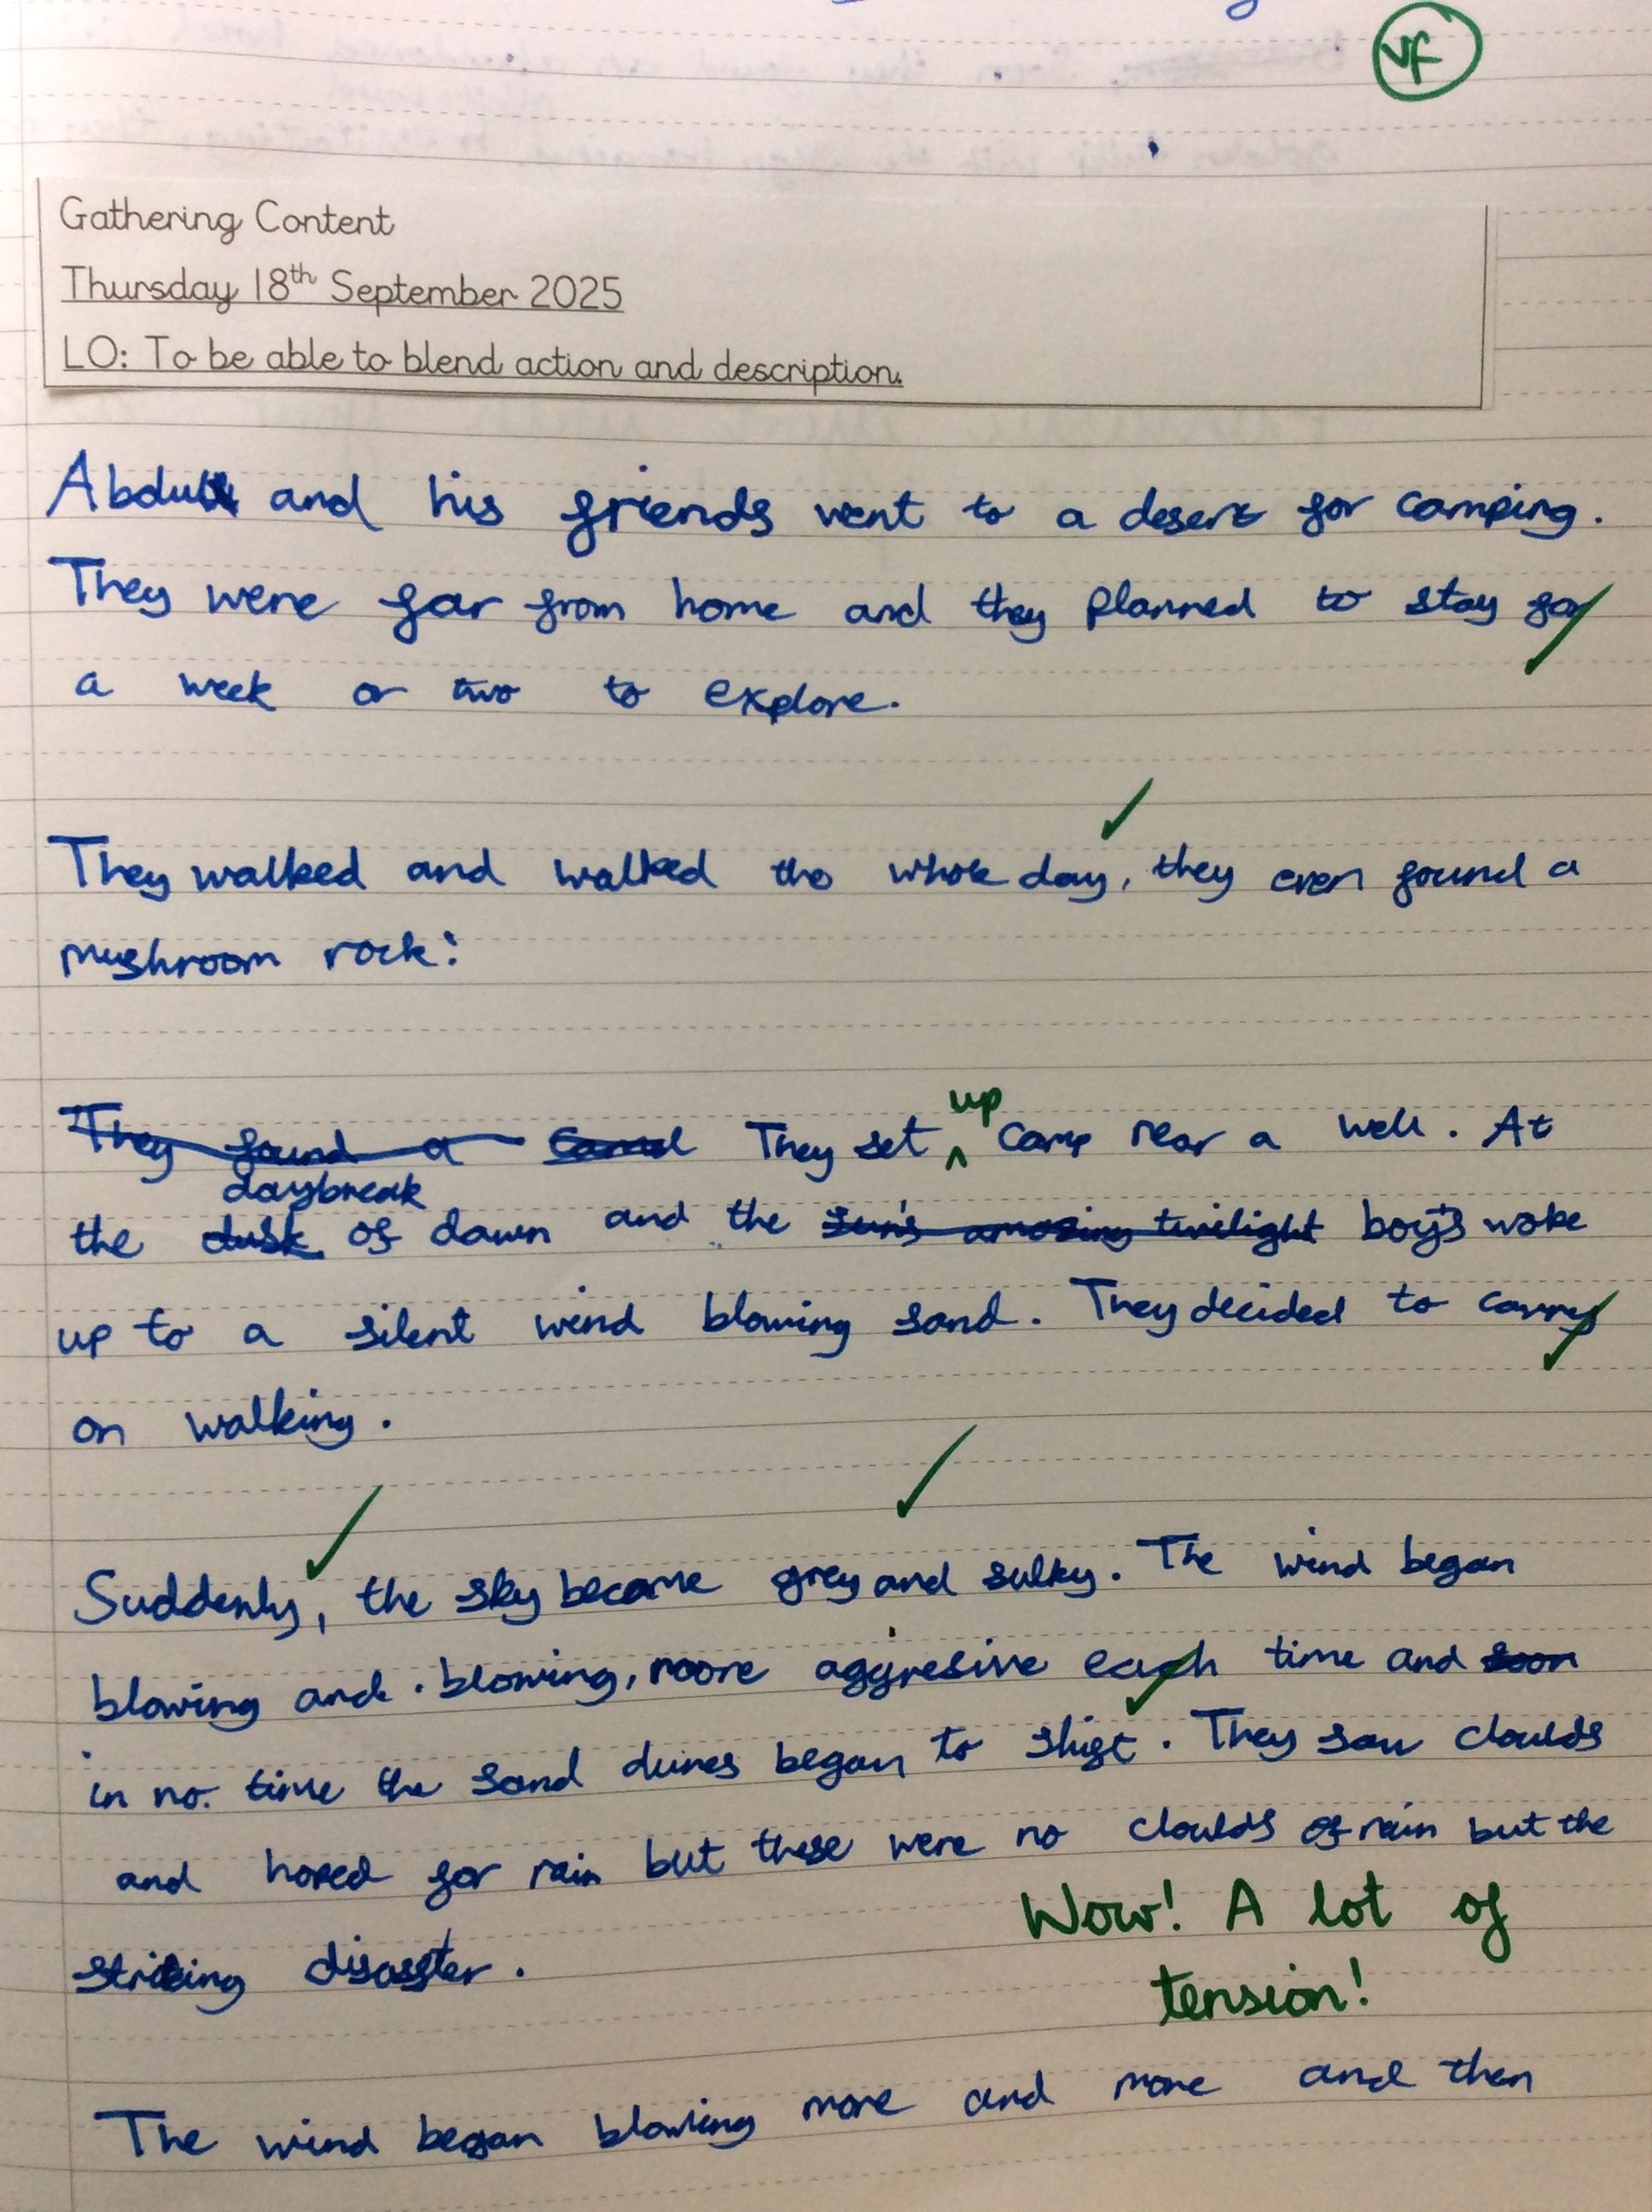 vf
Gathering Content
Thursday 18th September 2025
LO: To be able to blend action and description.
Abdul and his friends went to a desert for camping.
They were far from home and they planned to stay for
a week or two to explore.
They walked and walked the whole day, they even found a
mushroom rock!
They found a camel They set up camp near a well. At
daybreak
the dusk of dawn and the sun's amazing twilight boys woke
up to a silent wind blowing sand. They decided to carry
on walking.
Suddenly, the sky became grey and sulky. The wind began
blowing and blowing, more aggresive each time and soon
in no time the sand dunes began to shift. They saw cloulds
and hoped for rain but these were no cloulds of rain but the
striking disaster.
Wow! A lot of
tension!
The wind began blowing more and more and then